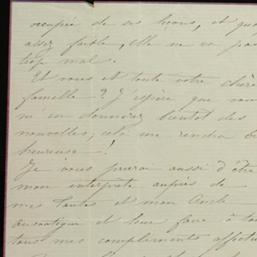 occupée de ses leçons, et quoi
assez faible, elle ne va pas
trop mal.
Et vous et toute votre chère
famille ? J'espère que vous
m'en donnerez bientôt des
nouvelles, cela me rendra
heureuse !
Je vous prierai aussi d'être
mon interprète auprès de
mes Tantes et mon Oncle
et leur faire à tous
tous mes compliments affectu